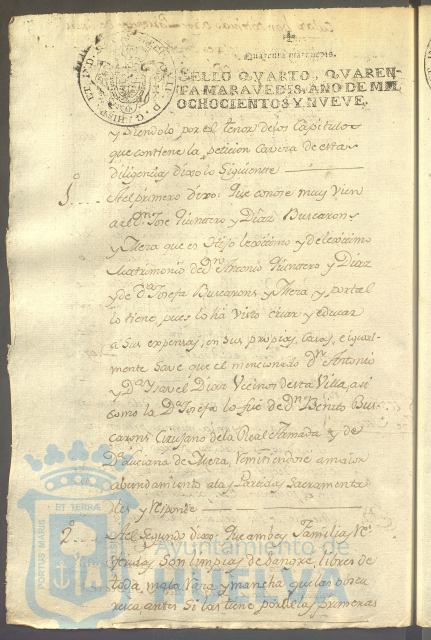 Quarenta maravedis.
SELLO QVARTO, QVAREN-
TA MARAVEDIS, AÑO DE MIL
OCHOCIENTOS Y NVEVE.
y siendolo por el tenor delos Capitulos
que contiene la peticion cavera de estas
diligencias dixo lo siguiente
1º Al primero dixo: Que conose muy vien
a el Dn Jose Quintero y Diaz Buscarons
y Mera que es Hijo legitimo y de legitimo
Matrimonio de Dn Antonio Quintero y Diaz
y de Da Josefa Buscarons y Mera, y por tal
lo tiene, pues lo há visto criar y educar
a sus expensas, en sus propias casas, e igual-
mente save que el mencionado Dn Antonio
y Da Ysavel Diaz Vecinos desta Villa, asi
como la Da Josefa lo fué de Dn Benito Bus-
carons Cirujano dela Real Armada y de
Da Luciana de Mera, remitiendose a maior
abundamiento alas Partidas Sacramenta-
les y responde
2º Al segundo dixo: Que ambas Familias
son limpias de sangre, libres de
toda mala raza y mancha que las obscu-
resca antes si las tiene por delas primeras
PORTUS MARIS
ET TERRÆ
Ayuntamiento de
HUELVA